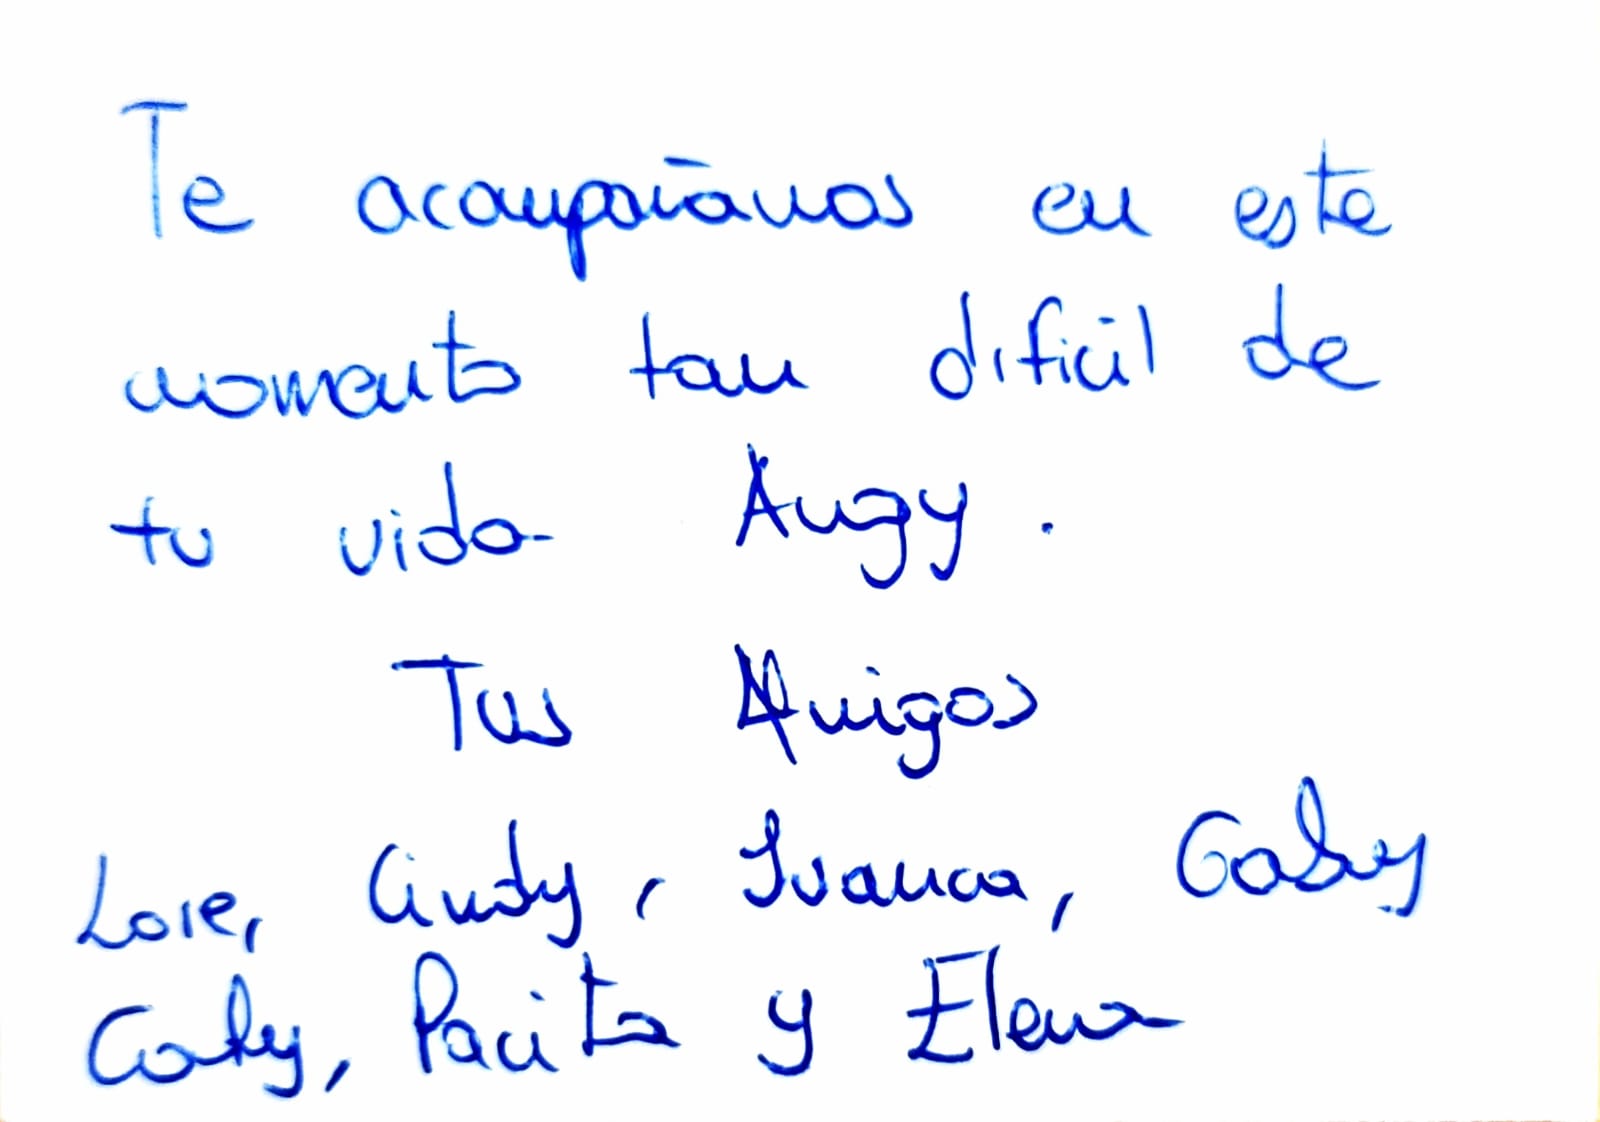 Te acompañamos en este
momento tan dificil de
tu vida Angy.
Tus Amigos
Lore, Cindy, Ivanca, Gaby
Caty, Pacita y Elena